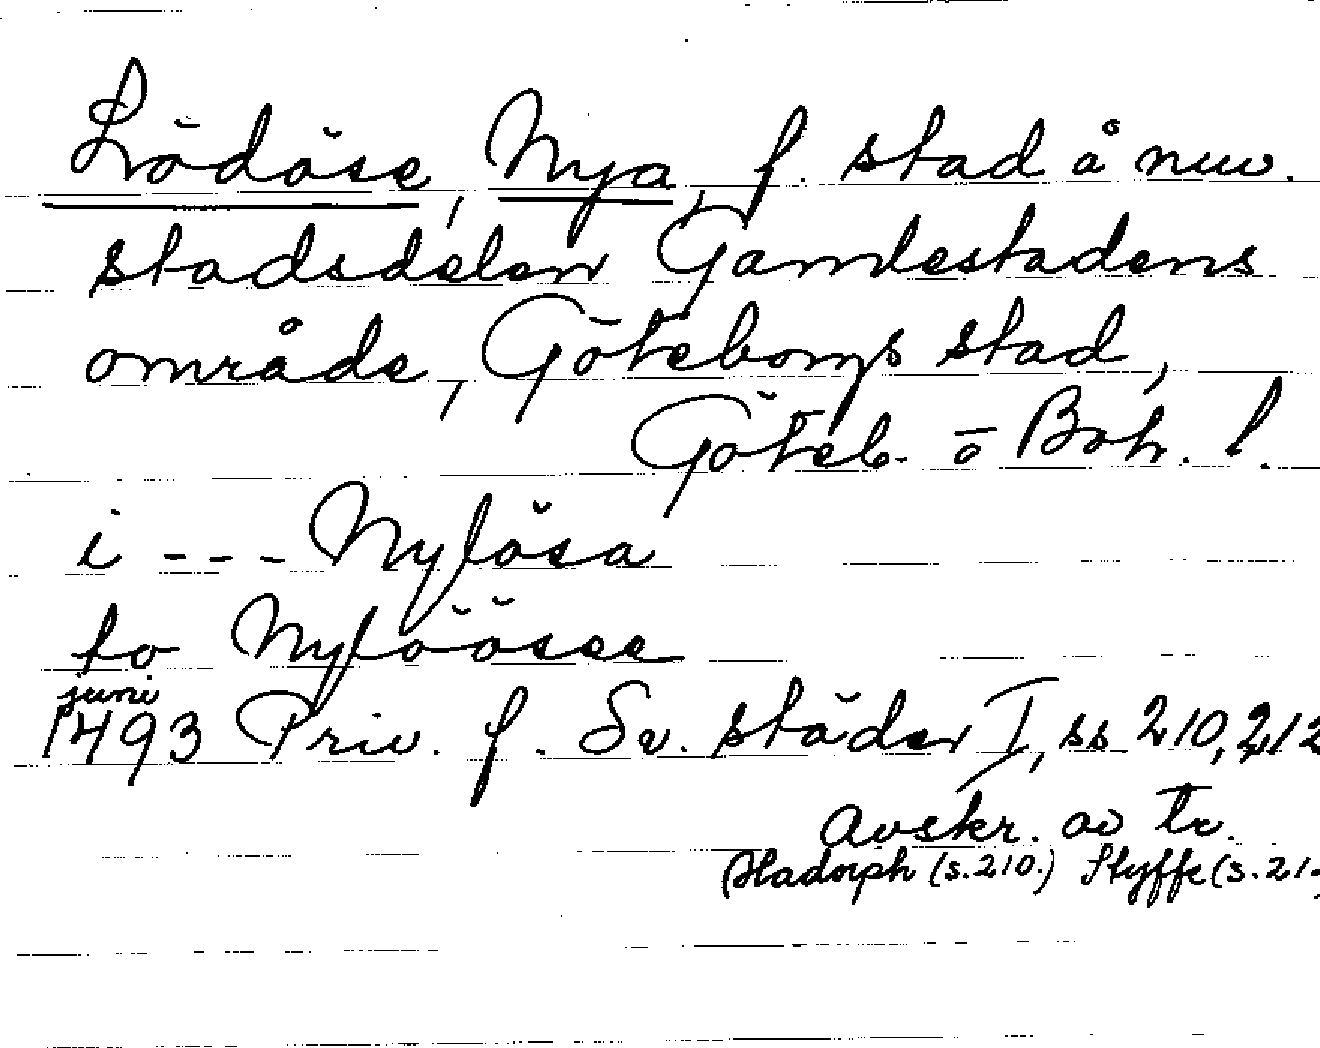 Lödöse, Nya, f. stad å nuv.
stadsdelen Gamlestadens
område, Göteborgs stad,
Göteb. o Boh. l.
i --- Nylösa
to Nylöösee
juni
1493 Priv. f. Sv. städer I, ss 210, 212
Avskr. av tr.
(Hadorph (s. 210.) Styffe (s. 21